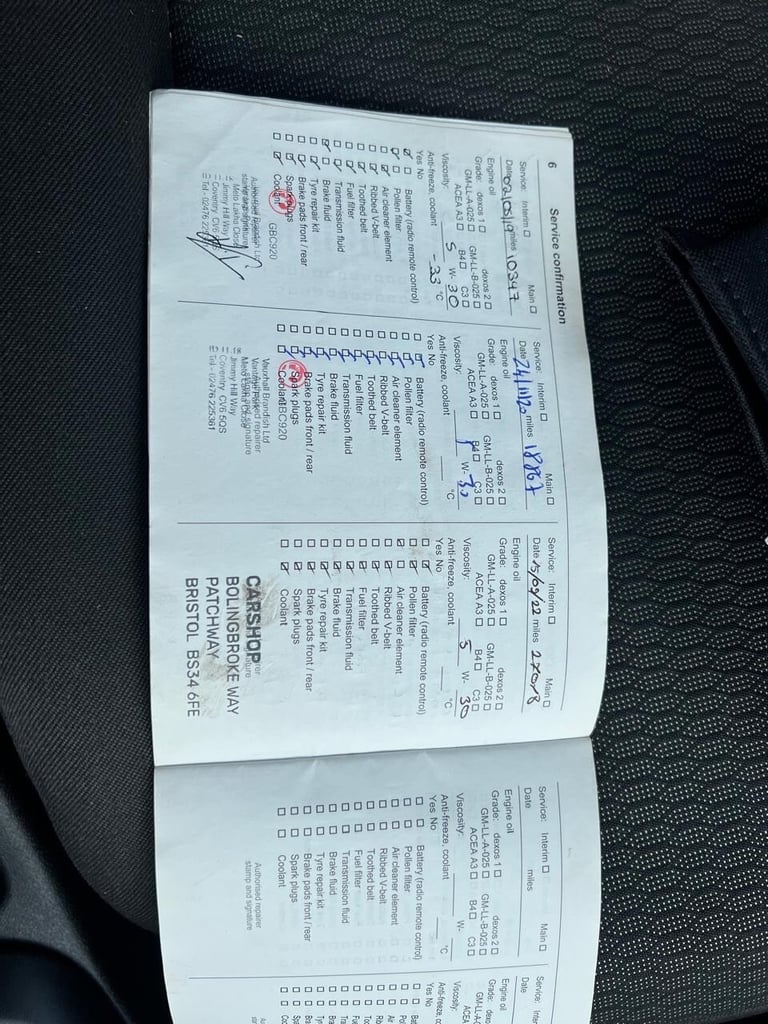 6
Service confirmation
Service: Interim ☐ Main ☐
Date 02/05/19 miles 10347
Engine oil
Grade: dexos 1 ☐ dexos 2 ☐
GM-LL-A-025 ☐ GM-LL-B-025 ☐
ACEA A3 ☐ B4 ☐ C3 ☐
Viscosity: 5 W- 30
Anti-freeze, coolant -33 °C
Yes No
Battery (radio remote control)
Pollen filter
Air cleaner element
Ribbed V-belt
Toothed belt
Fuel filter
Transmission fluid
Brake fluid
Tyre repair kit
Brake pads front / rear
Spark plugs
Coolant
GBC920
Jimmy Hill Way
Coventry, CV6
Service: Interim ☐ Main ☐
Date miles 18867
Engine oil
Grade: dexos 1 ☐ dexos 2 ☐
GM-LL-A-025 ☐ GM-LL-B-025 ☐
ACEA A3 ☐ B4 ☐ C3 ☐
Viscosity: W- 30
Anti-freeze, coolant °C
Yes No
Battery (radio remote control)
Pollen filter
Air cleaner element
Ribbed V-belt
Toothed belt
Fuel filter
Transmission fluid
Brake fluid
Tyre repair kit
Brake pads front / rear
Spark plugs
Coolant
GBC920
Vauxhall Brandish Ltd
Jimmy Hill Way
Coventry, CV6 5QS
Tel - 02476 225361
Service: Interim ☐ Main ☐
Date miles
Engine oil
Grade: dexos 1 ☐ dexos 2 ☐
GM-LL-A-025 ☐ GM-LL-B-025 ☐
ACEA A3 ☐ B4 ☐ C3 ☐
Viscosity: 5 W- 30
Anti-freeze, coolant °C
Yes No
Battery (radio remote control)
Pollen filter
Air cleaner element
Ribbed V-belt
Toothed belt
Fuel filter
Transmission fluid
Brake fluid
Tyre repair kit
Brake pads front / rear
Spark plugs
Coolant
CARSHOP
BOLINGBROKE WAY
PATCHWAY
BRISTOL BS34 6FE
Service: Interim ☐ Main ☐
Date miles
Engine oil
Grade: dexos 1 ☐ dexos 2 ☐
GM-LL-A-025 ☐ GM-LL-B-025 ☐
ACEA A3 ☐ B4 ☐ C3 ☐
Viscosity: W-
Anti-freeze, coolant °C
Yes No
Battery (radio remote control)
Pollen filter
Air cleaner element
Ribbed V-belt
Toothed belt
Fuel filter
Transmission fluid
Brake fluid
Tyre repair kit
Brake pads front / rear
Spark plugs
Coolant
Authorised repairer
stamp and signature
Service:
Date
Engine oil
Grade:
Viscosity:
Yes No